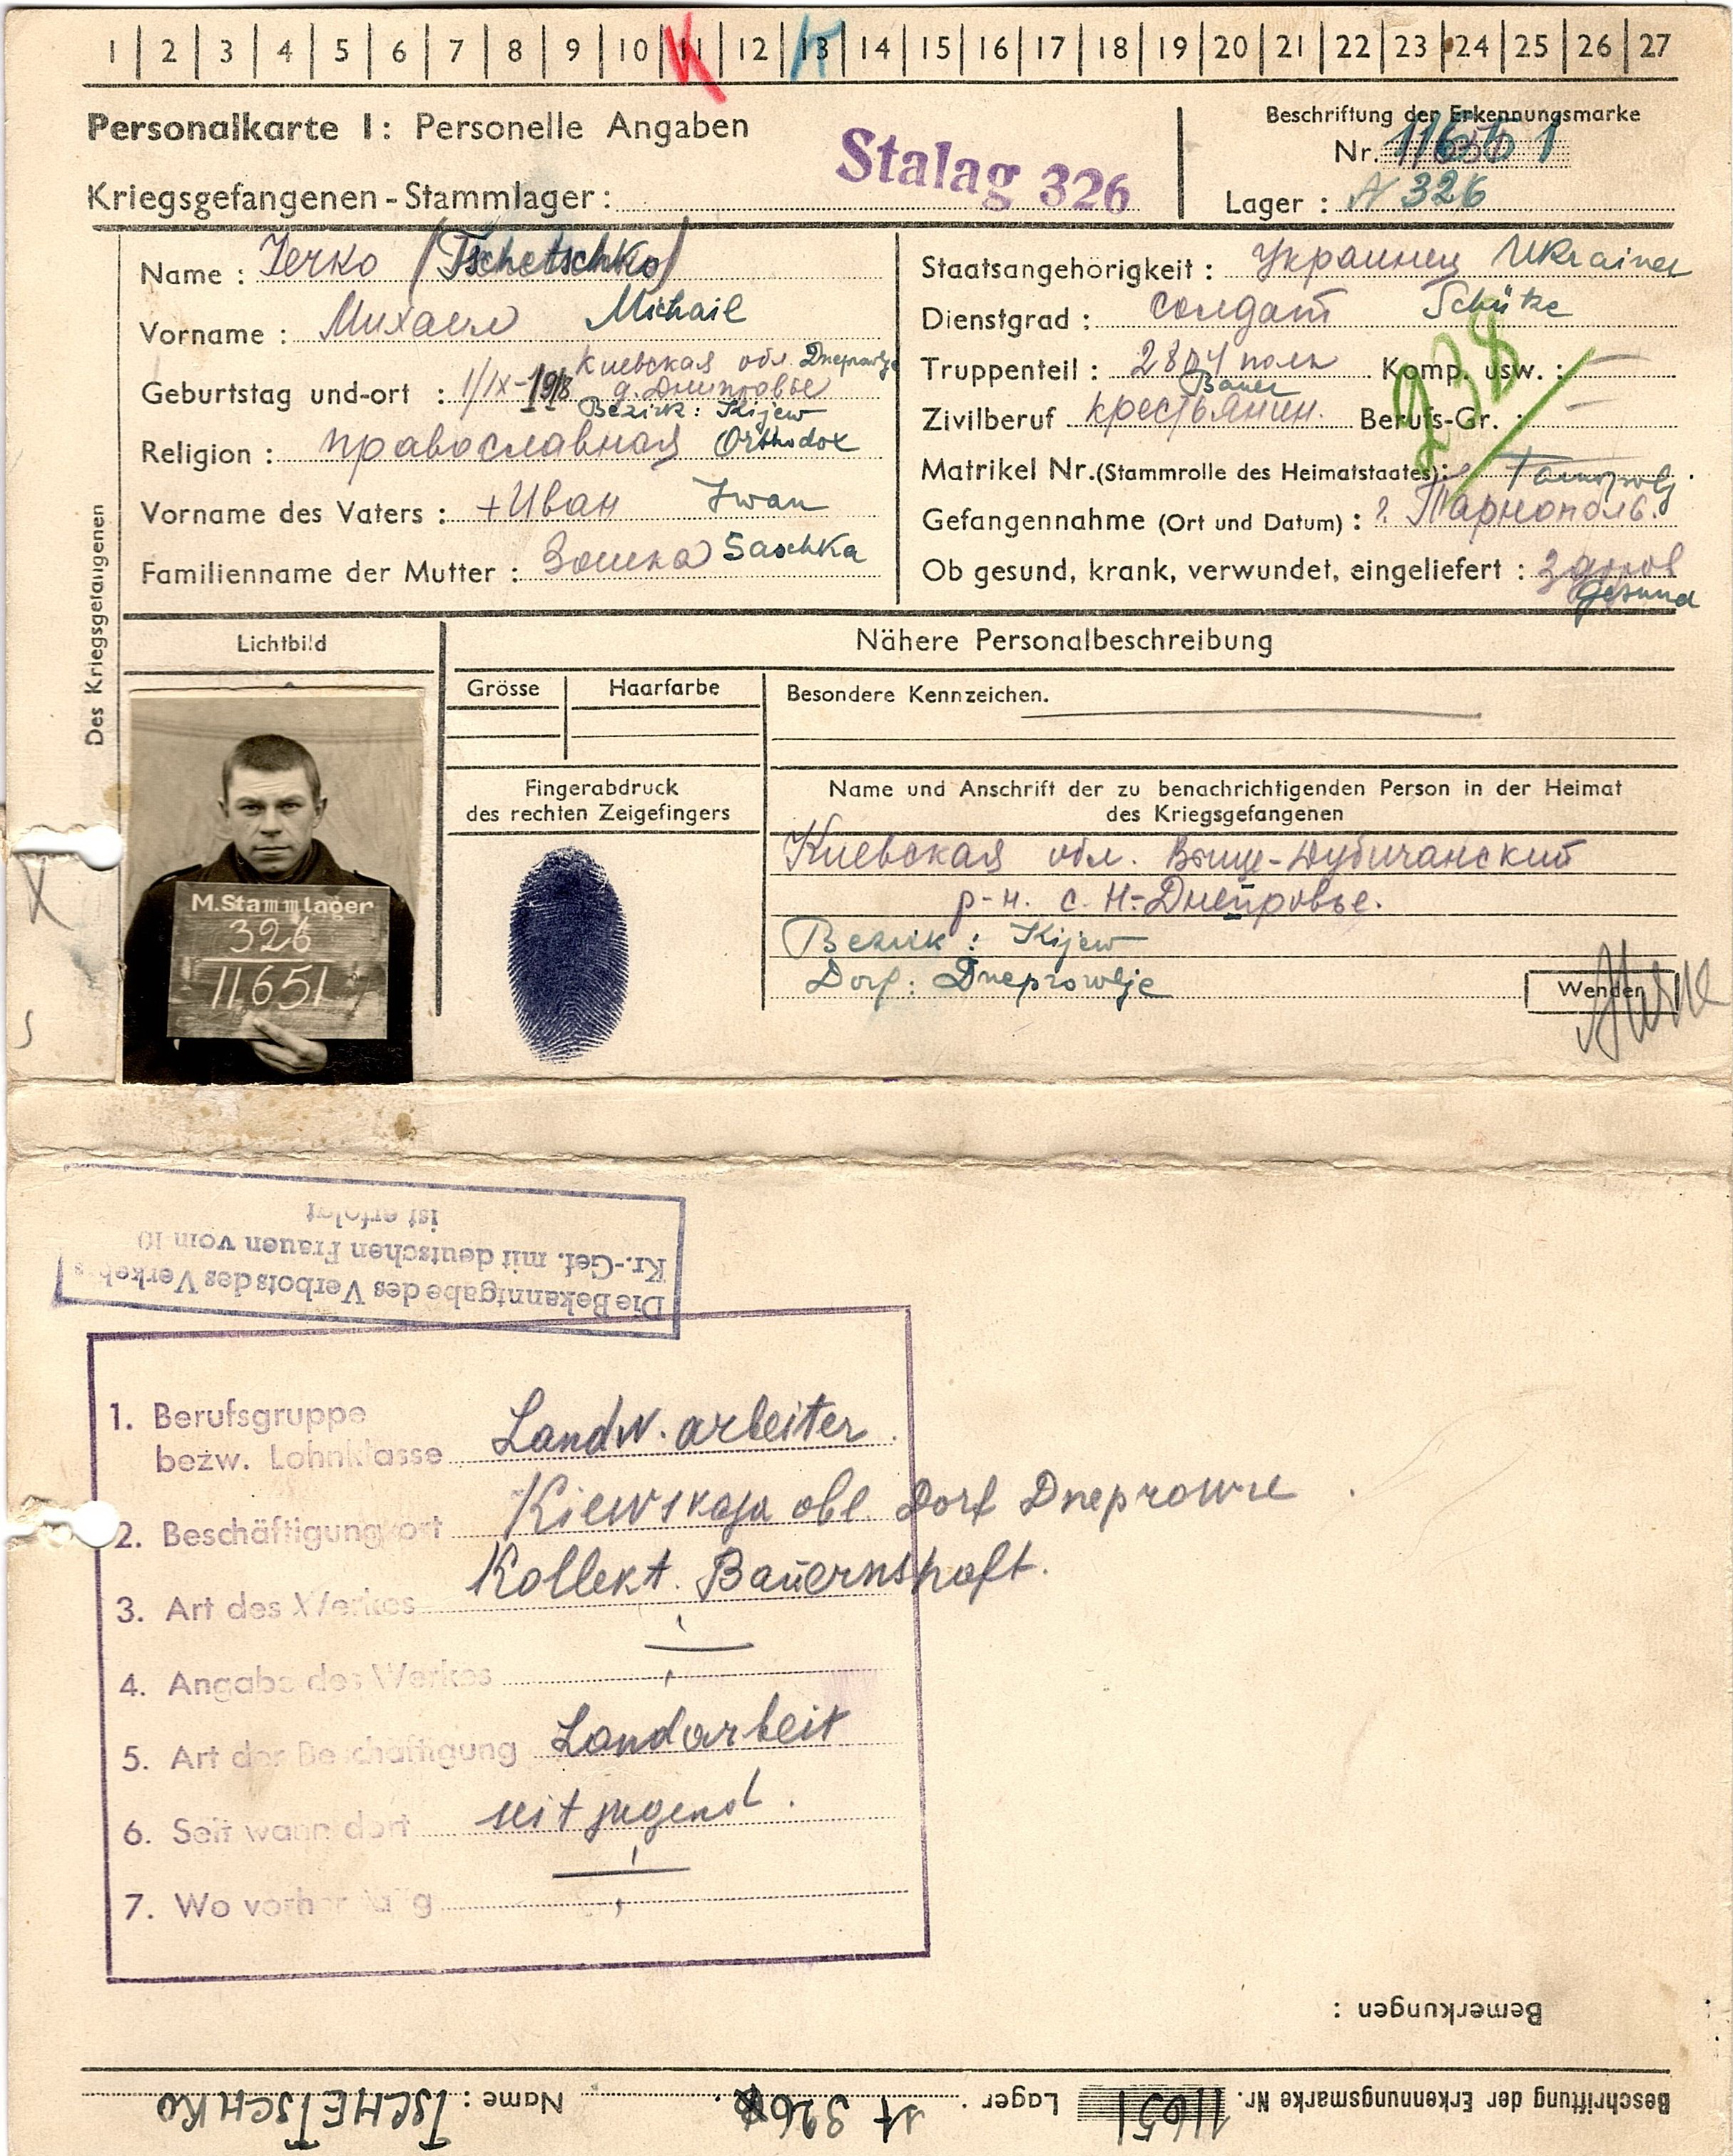 1 | 2 | 3 | 4 | 5 | 6 | 7 | 8 | 9 | 10 | 11 | 12 | 13 | 14 | 15 | 16 | 17 | 18 | 19 | 20 | 21 | 22 | 23 | 24 | 25 | 26 | 27
K K
Personalkarte I: Personelle Angaben
Kriegsgefangenen-Stammlager: Stalag 326
Beschriftung der Erkennungsmarke
Nr. 11651
Lager: 326
Des Kriegsgefangenen
Name: (Tschetschko)
Vorname: Михаил Michail
Киевская обл. Dneprowlje
Geburtstag und-ort: 1/IX-1918 д. Днипровье
Bezirk: Kijew
Religion: православная Orthodox
Vorname des Vaters: +Иван Iwan
Familienname der Mutter: Saschka
Staatsangehörigkeit: Украинец Ukrainer
Dienstgrad: солдат Schütze
Truppenteil: полк Komp. usw.: —
Bauer
Zivilberuf крестьянин. Berufs-Gr.: —
238
Matrikel Nr. (Stammrolle des Heimatstaates):
Gefangennahme (Ort und Datum): г. Тарнополь.
Ob gesund, krank, verwundet, eingeliefert: здоров
Gesund
Lichtbild
M.Stammlager
326
11651
Nähere Personalbeschreibung
Grösse
Haarfarbe
Besondere Kennzeichen.
Fingerabdruck
des rechten Zeigefingers
Name und Anschrift der zu benachrichtigenden Person in der Heimat
des Kriegsgefangenen
Киевская обл. Выще-Дубичанский
р-н. с. Н-Днепровье.
Bezirk: Kijew
Dorf: Dneprowlje
Wenden
Die Bekanntgabe des Verbots des Verkehrs
Kr.-Gef. mit deutschen Frauen vom 10
ist erfolgt
1. Berufsgruppe
bezw. Lohnklasse Landw. arbeiter.
2. Beschäftigungsort Kiewskaja obl. Dorf Dneprowie.
3. Art des Werkes Kollekt. Bauernshaft.
4. Angabe des Werkes
5. Art der Beschäftigung Landarbeit
6. Seit wann dort seit jugend.
7. Wo vorher tätig
Bemerkungen:
Beschriftung der Erkennungsmarke Nr. 11651 Lager 326 Name: TSCHETSCHKO